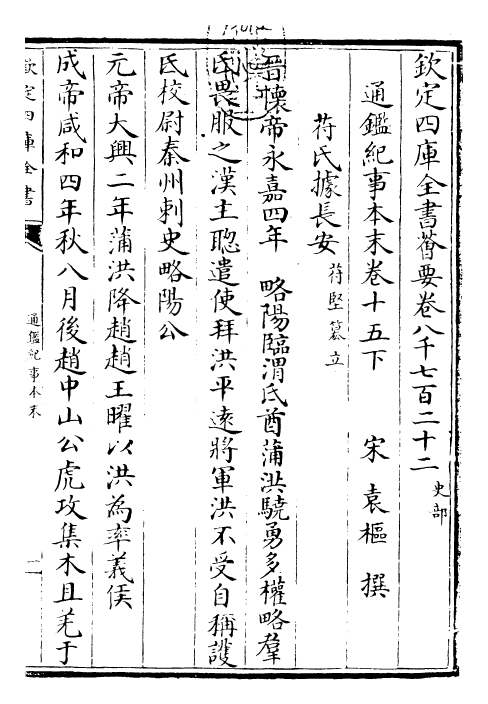 欽定四庫全書薈要卷八千七百二十二 史部
通鑑紀事本末卷十五下 宋 袁樞 撰
苻氏據長安 苻堅篡立
晉懷帝永嘉四年 略陽臨渭氐酋蒲洪驍勇多權略羣
氐畏服之漢主聰遣使拜洪平遠將軍洪不受自稱護
氐校尉秦州刺史略陽公
元帝大興二年蒲洪降趙趙王曜以洪為率義侯
成帝咸和四年秋八月後趙中山公虎攻集木且羌于
欽定四庫全書
通鑑紀事本末